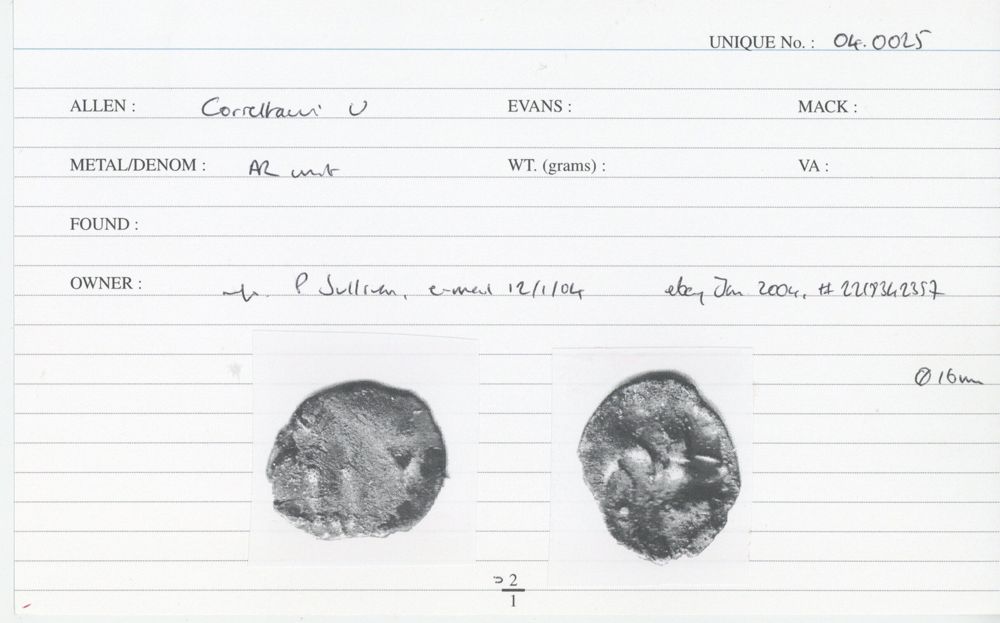 UNIQUE No. : 04.0025
ALLEN : Correltauvi U EVANS : MACK :
METAL/DENOM : AR unit WT. (grams) : VA :
FOUND :
OWNER : P Sullivan, e-mail 12/1/04 ebay Jan 2004, # 2219342357
Ø 16mm
2
1